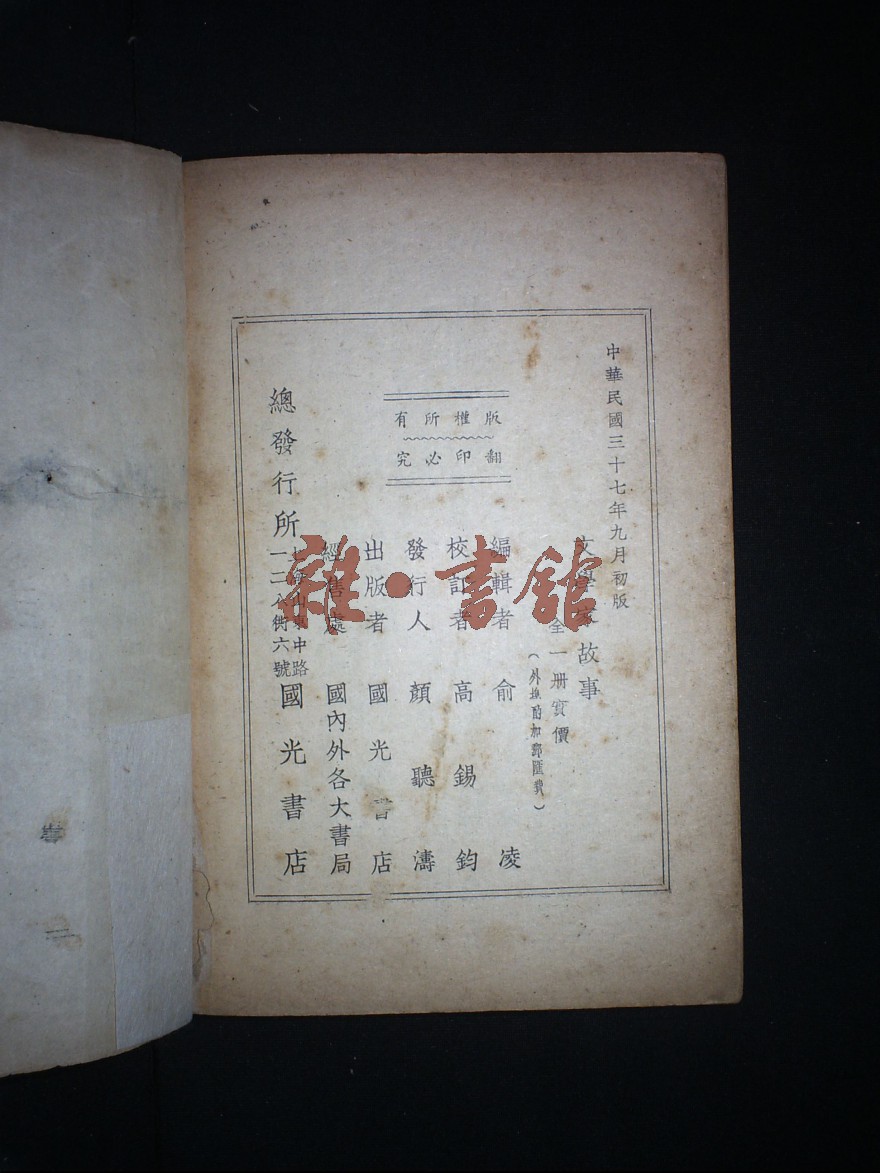 中華民國三十七年九月初版
文學家故事
全一册實價
(外埠酌加郵匯費)
版權所有
翻印必究
編輯者 俞凌
校訂者 高錫鈞
發行人 顏聽濤
出版者 國光書店
經售處 國內外各大書局
總發行所 上海山東中路一二八街六號 國光書店
雜·書館